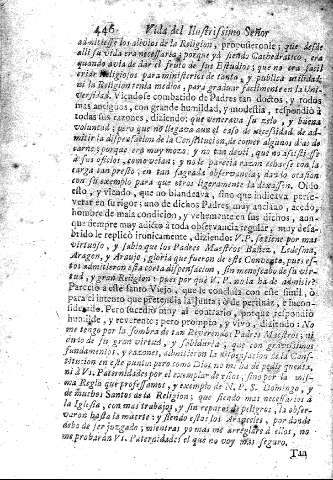 446 Vida del Ilustrissimo Señor
admitiesse los alivios de la Religion, propusieronle; que desde
allì su vida era necessaria; porque yà siendo Cathedratico, era
quando avia de dar el fruto de sus Estudios; que no era facil
criar Religiosos para ministerios de tanta, y publica utilidad;
ni la Religion tenia medios, para graduar facilmente en la Uni-
versidad. Viendose combatido de Padres tan doctos, y todos
mas antiguos, con grande humildad, y modestia, respondiò à
todas sus razones, diziendo: que veneraba su zelo, y buena
voluntad; pero que no llegava aun el caso de necessidad de ad-
mitir la dispensacion de la Constitucion, de comer algunos dias de
carne; porque era muy mozo, y no tan devil, que no assistiesse
à sus oficios, como veìan; y no le parecia razon echarse con la
carga tan presto; en tan sagrada observancia; dando ocasion
con su exemplo para que otros ligeramente la dexassen. Oìdo
esto, y viendo, que no blandeava, sino que indicava perse-
verar en su rigor; uno de dichos Padres, muy anciano, acedo,
hombre de mala condicion, y vehemente en sus dichos, aun-
que siempre muy adicto à toda observancia regular; muy desa-
brido le replicò ironicamente, diziendo: V.P. se tiene por mas
virtuoso, y sabio que los Padres Maestros Bañez, Ledesma,
Aragon, y Araujo, gloria que fueron de este Convento, pues es-
tos admitieron esta corta dispensacion, sin menoscabo de su vir-
tud, y gran Religion: pues por què V.P. no la ha de admitir?
Pareciò à este santo Viejo, que le concluìa con este simil, ò
para el intento que pretendia la Junta; ò de pertinaz, è incon-
siderado. Pero sucediò muy al contrario, porque respondiò
humilde, y reverente; pero prompto, y vivo, diziendo: No
me tengo por la sombra de tan Reverendos Padres Maestros; ni
dudo de su gran virtud, y sabiduria, que con gravissimos
fundamentos, y razones, admitieron la dispensacion de la Cons-
titucion en este punto; pero como Dios no me ha de pedir quenta,
ni à Vs. Paternidades por el exemplar de estos, sino por la mis-
ma Regla que professamos, y exemplo de N. P. S. Domingo, y
de muchos Santos de la Religion; que siendo mas necessarios à
la Iglesia, con mas trabajos, y sin reparos de peligros, la obser-
varon hasta la muerte: y siendo estos los Aranceles, por donde
debo de ser juzgado; mientras yo mas me arreglare à ellos, no
me probaràn Vs. Paternidades el que no voy mas seguro.
Tan